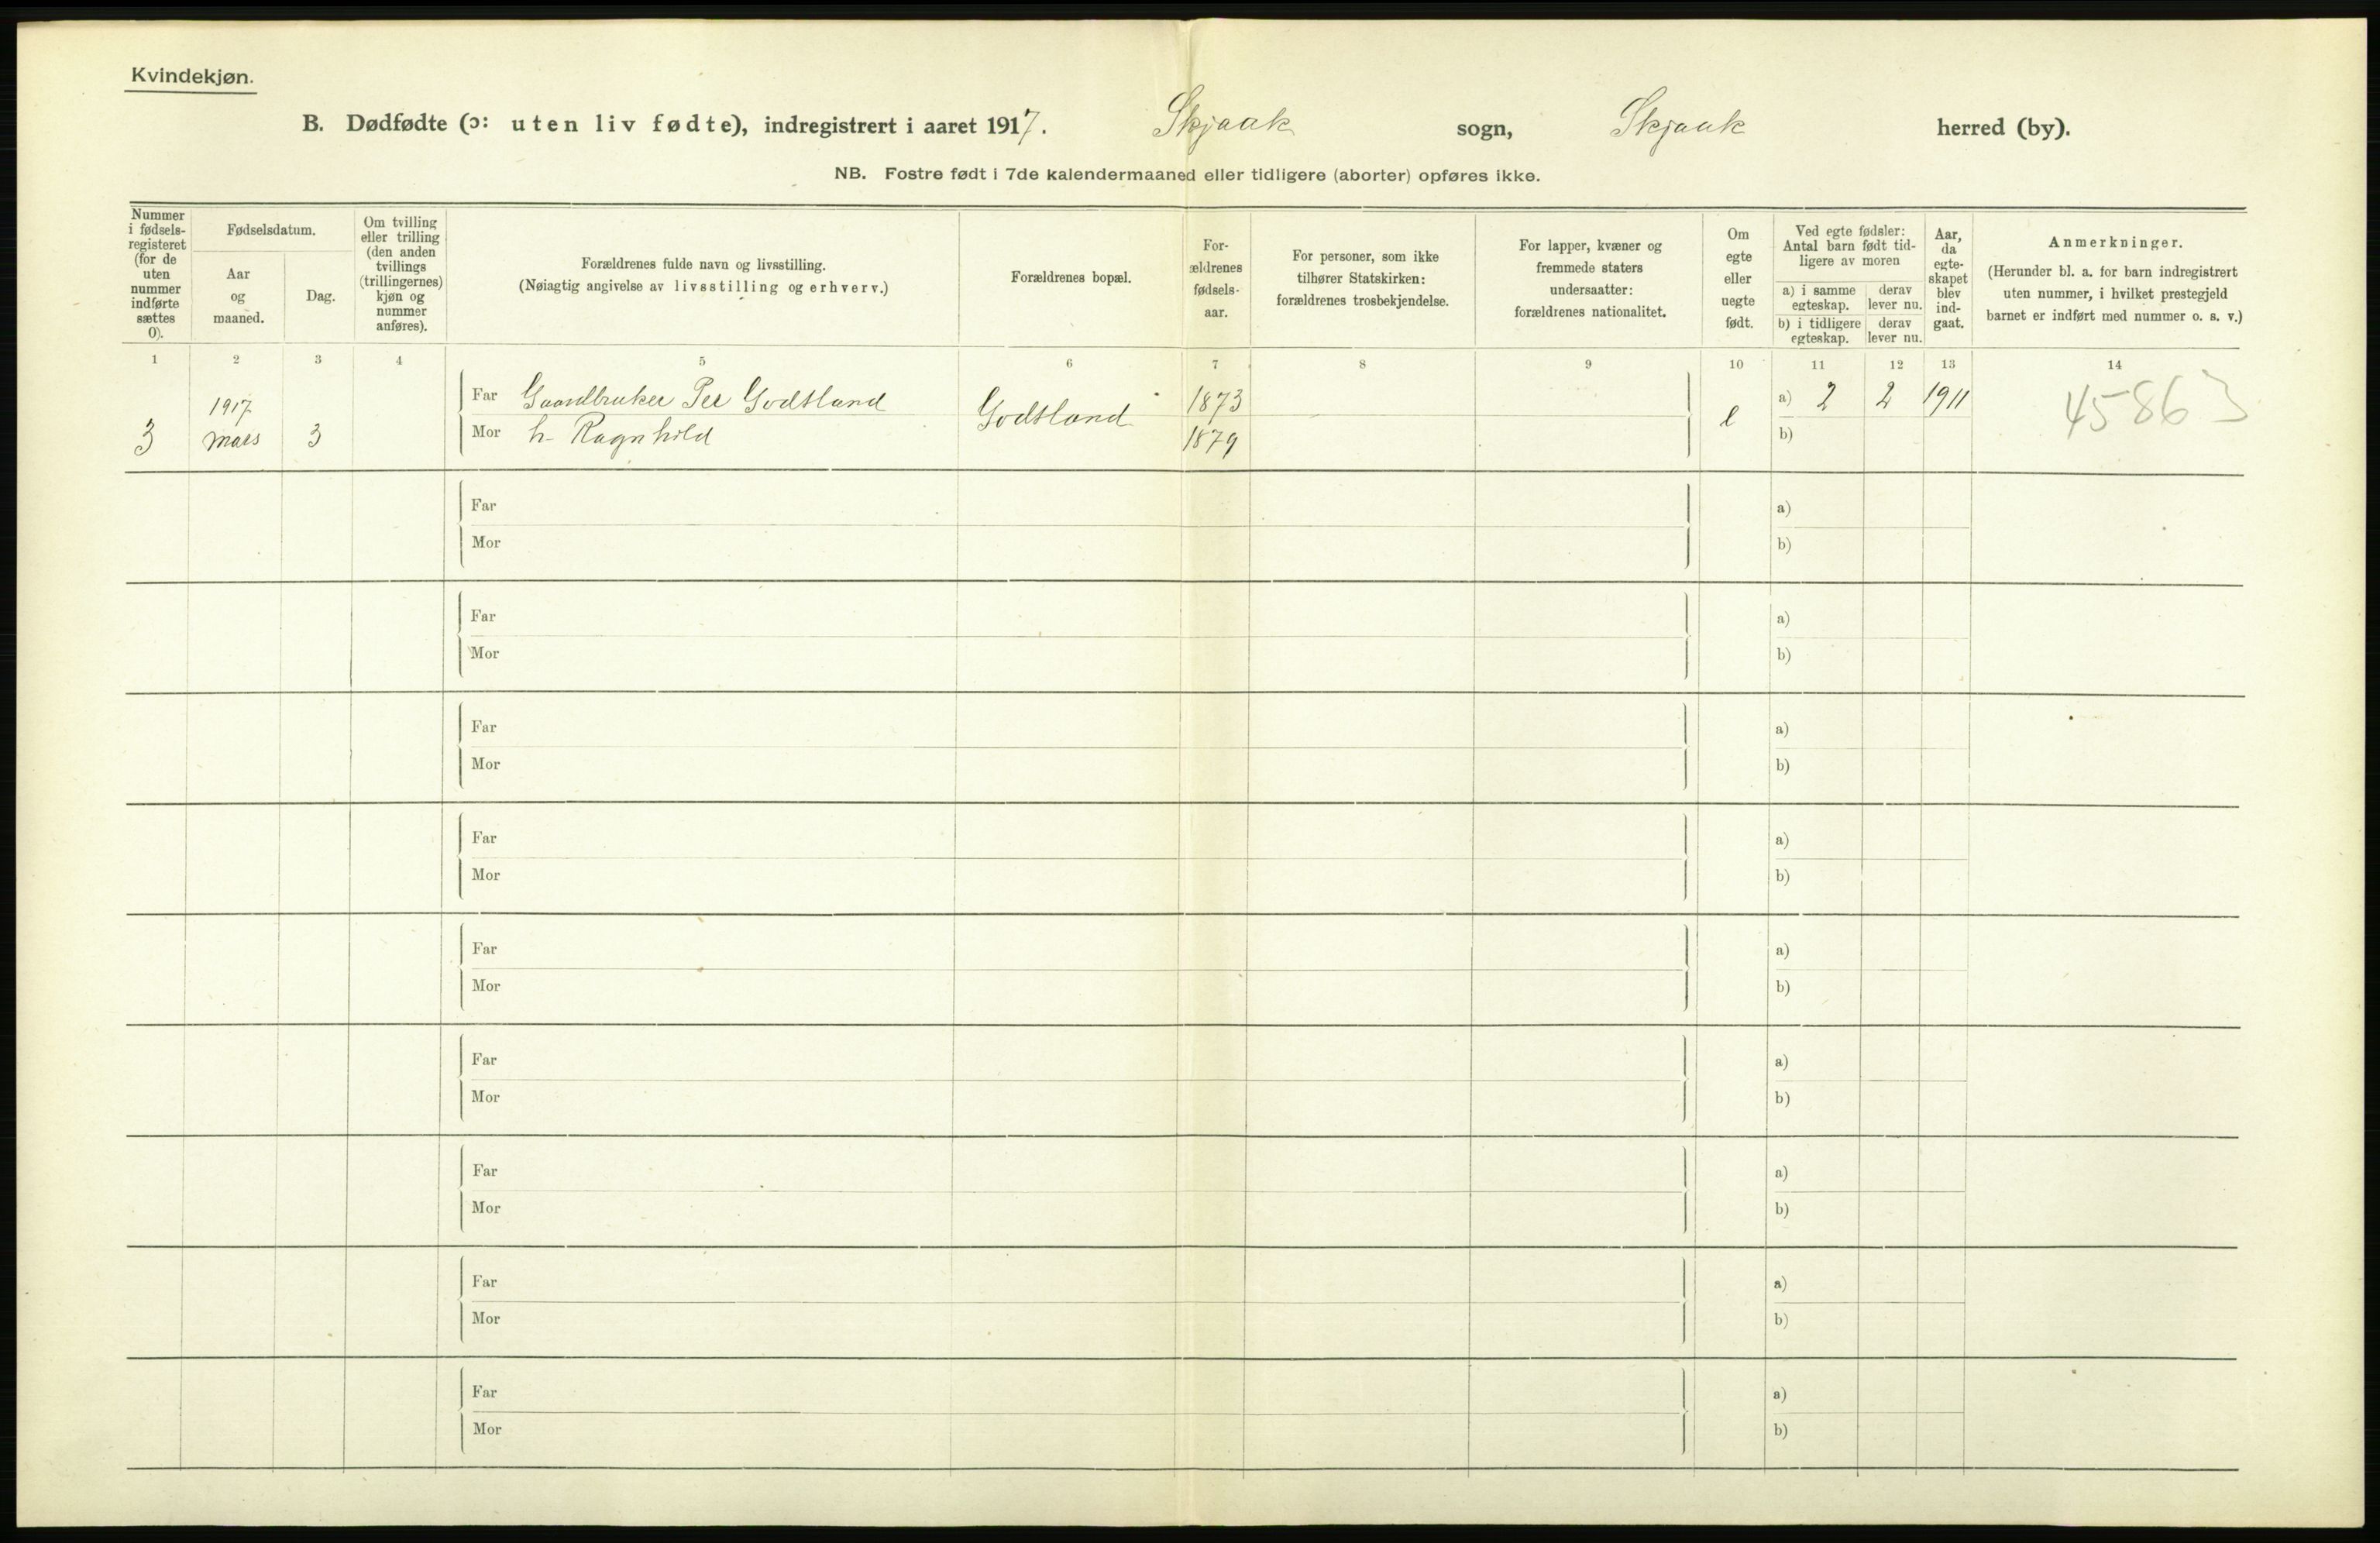 Kvindekjøn.
B. Dødfødte (ɔ: uten liv fødte), indregistrert i aaret 1917. Skjaak sogn, Skjaak herred (by).
NB. Fostre født i 7de kalendermaaned eller tidligere (aborter) opføres ikke.
Nummer i fødsels-registeret (for de uten nummer indførte sættes 0).
Fødselsdatum.
Aar og maaned.
Dag.
Om tvilling eller trilling (den anden tvillings (trillingernes) kjøn og nummer anføres).
Forældrenes fulde navn og livsstilling.
(Nøiagtig angivelse av livsstilling og erhverv.)
Forældrenes bopæl.
For-ældrenes fødsels-aar.
For personer, som ikke tilhører Statskirken: forældrenes trosbekjendelse.
For lapper, kvæner og fremmede staters undersaatter: forældrenes nationalitet.
Om egte eller uegte født.
Ved egte fødsler: Antal barn født tid-ligere av moren
a) i samme egteskap. derav lever nu.
b) i tidligere egteskap. derav lever nu.
Aar, da egte-skapet blev ind-gaat.
Anmerkninger.
(Herunder bl. a. for barn indregistrert uten nummer, i hvilket prestegjeld barnet er indført med nummer o. s. v.)
1 2 3 4 5 6 7 8 9 10 11 12 13 14
3 1917 mars 3
Far Gaardbruker Per Godtland Godtland 1873 e a) 2 2 1911 45863
Mor h. Ragnhild 1879 b)
Far a)
Mor b)
Far a)
Mor b)
Far a)
Mor b)
Far a)
Mor b)
Far a)
Mor b)
Far a)
Mor b)
Far a)
Mor b)
Far a)
Mor b)
Far a)
Mor b)